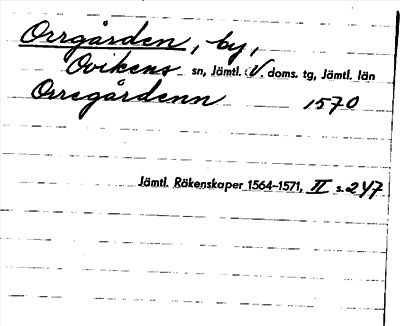 Orrgården, by,
Ovikens sn, Jämtl. V. doms. tg, Jämtl. län
Orregårdenn 1570
Jämtl. Räkenskaper 1564-1571, II s. 247